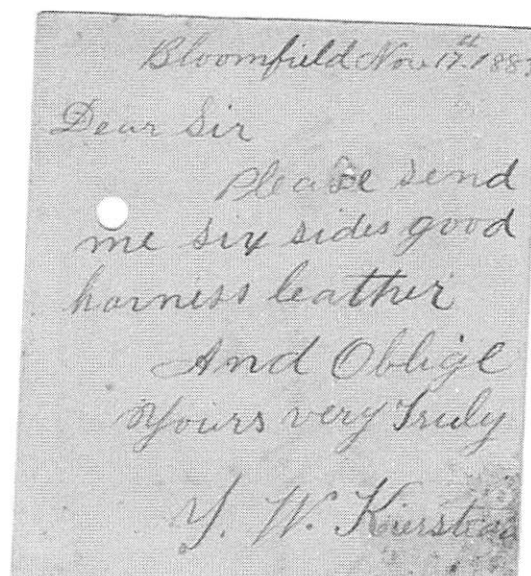 Bloomfield Nov 17th 188
Dear Sir
Please send
me six sides good
harness leather
And Oblige
Yours very Truly
W. Kierstead